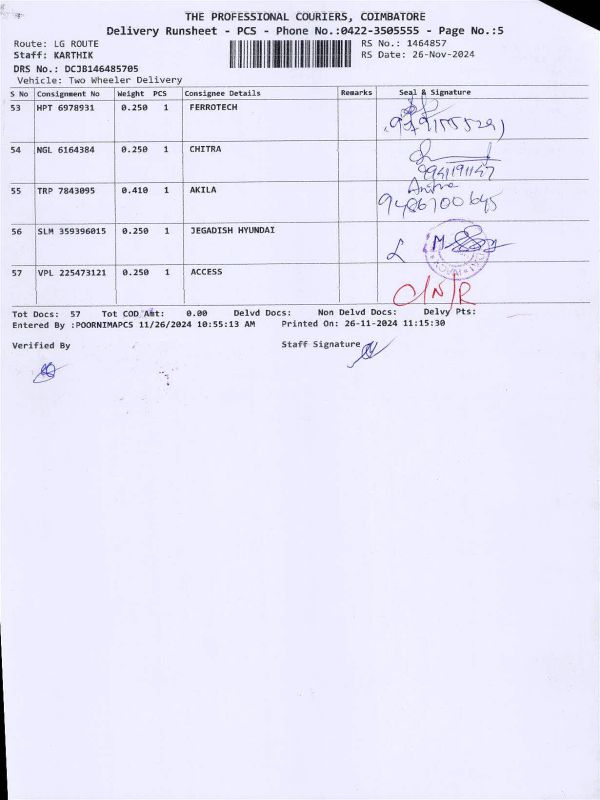 THE PROFESSIONAL COURIERS, COIMBATORE
Delivery Runsheet - PCS - Phone No.:0422-3505555 - Page No.:5
Route: LG ROUTE RS No.: 1464857
Staff: KARTHIK RS Date: 26-Nov-2024
DRS No.: DCJB146485705
Vehicle: Two Wheeler Delivery
S No Consignment No Weight PCS Consignee Details Remarks Seal & Signature
53 HPT 6978931 0.250 1 FERROTECH
54 NGL 6164384 0.250 1 CHITRA
9941191147
55 TRP 7843095 0.410 1 AKILA
9486700645
56 SLM 359396015 0.250 1 JEGADISH HYUNDAI
57 VPL 225473121 0.250 1 ACCESS
C/N/R
Tot Docs: 57 Tot COD Amt: 0.00 Delvd Docs: Non Delvd Docs: Delvy Pts:
Entered By :POORNIMAPCS 11/26/2024 10:55:13 AM Printed On: 26-11-2024 11:15:30
Verified By Staff Signature